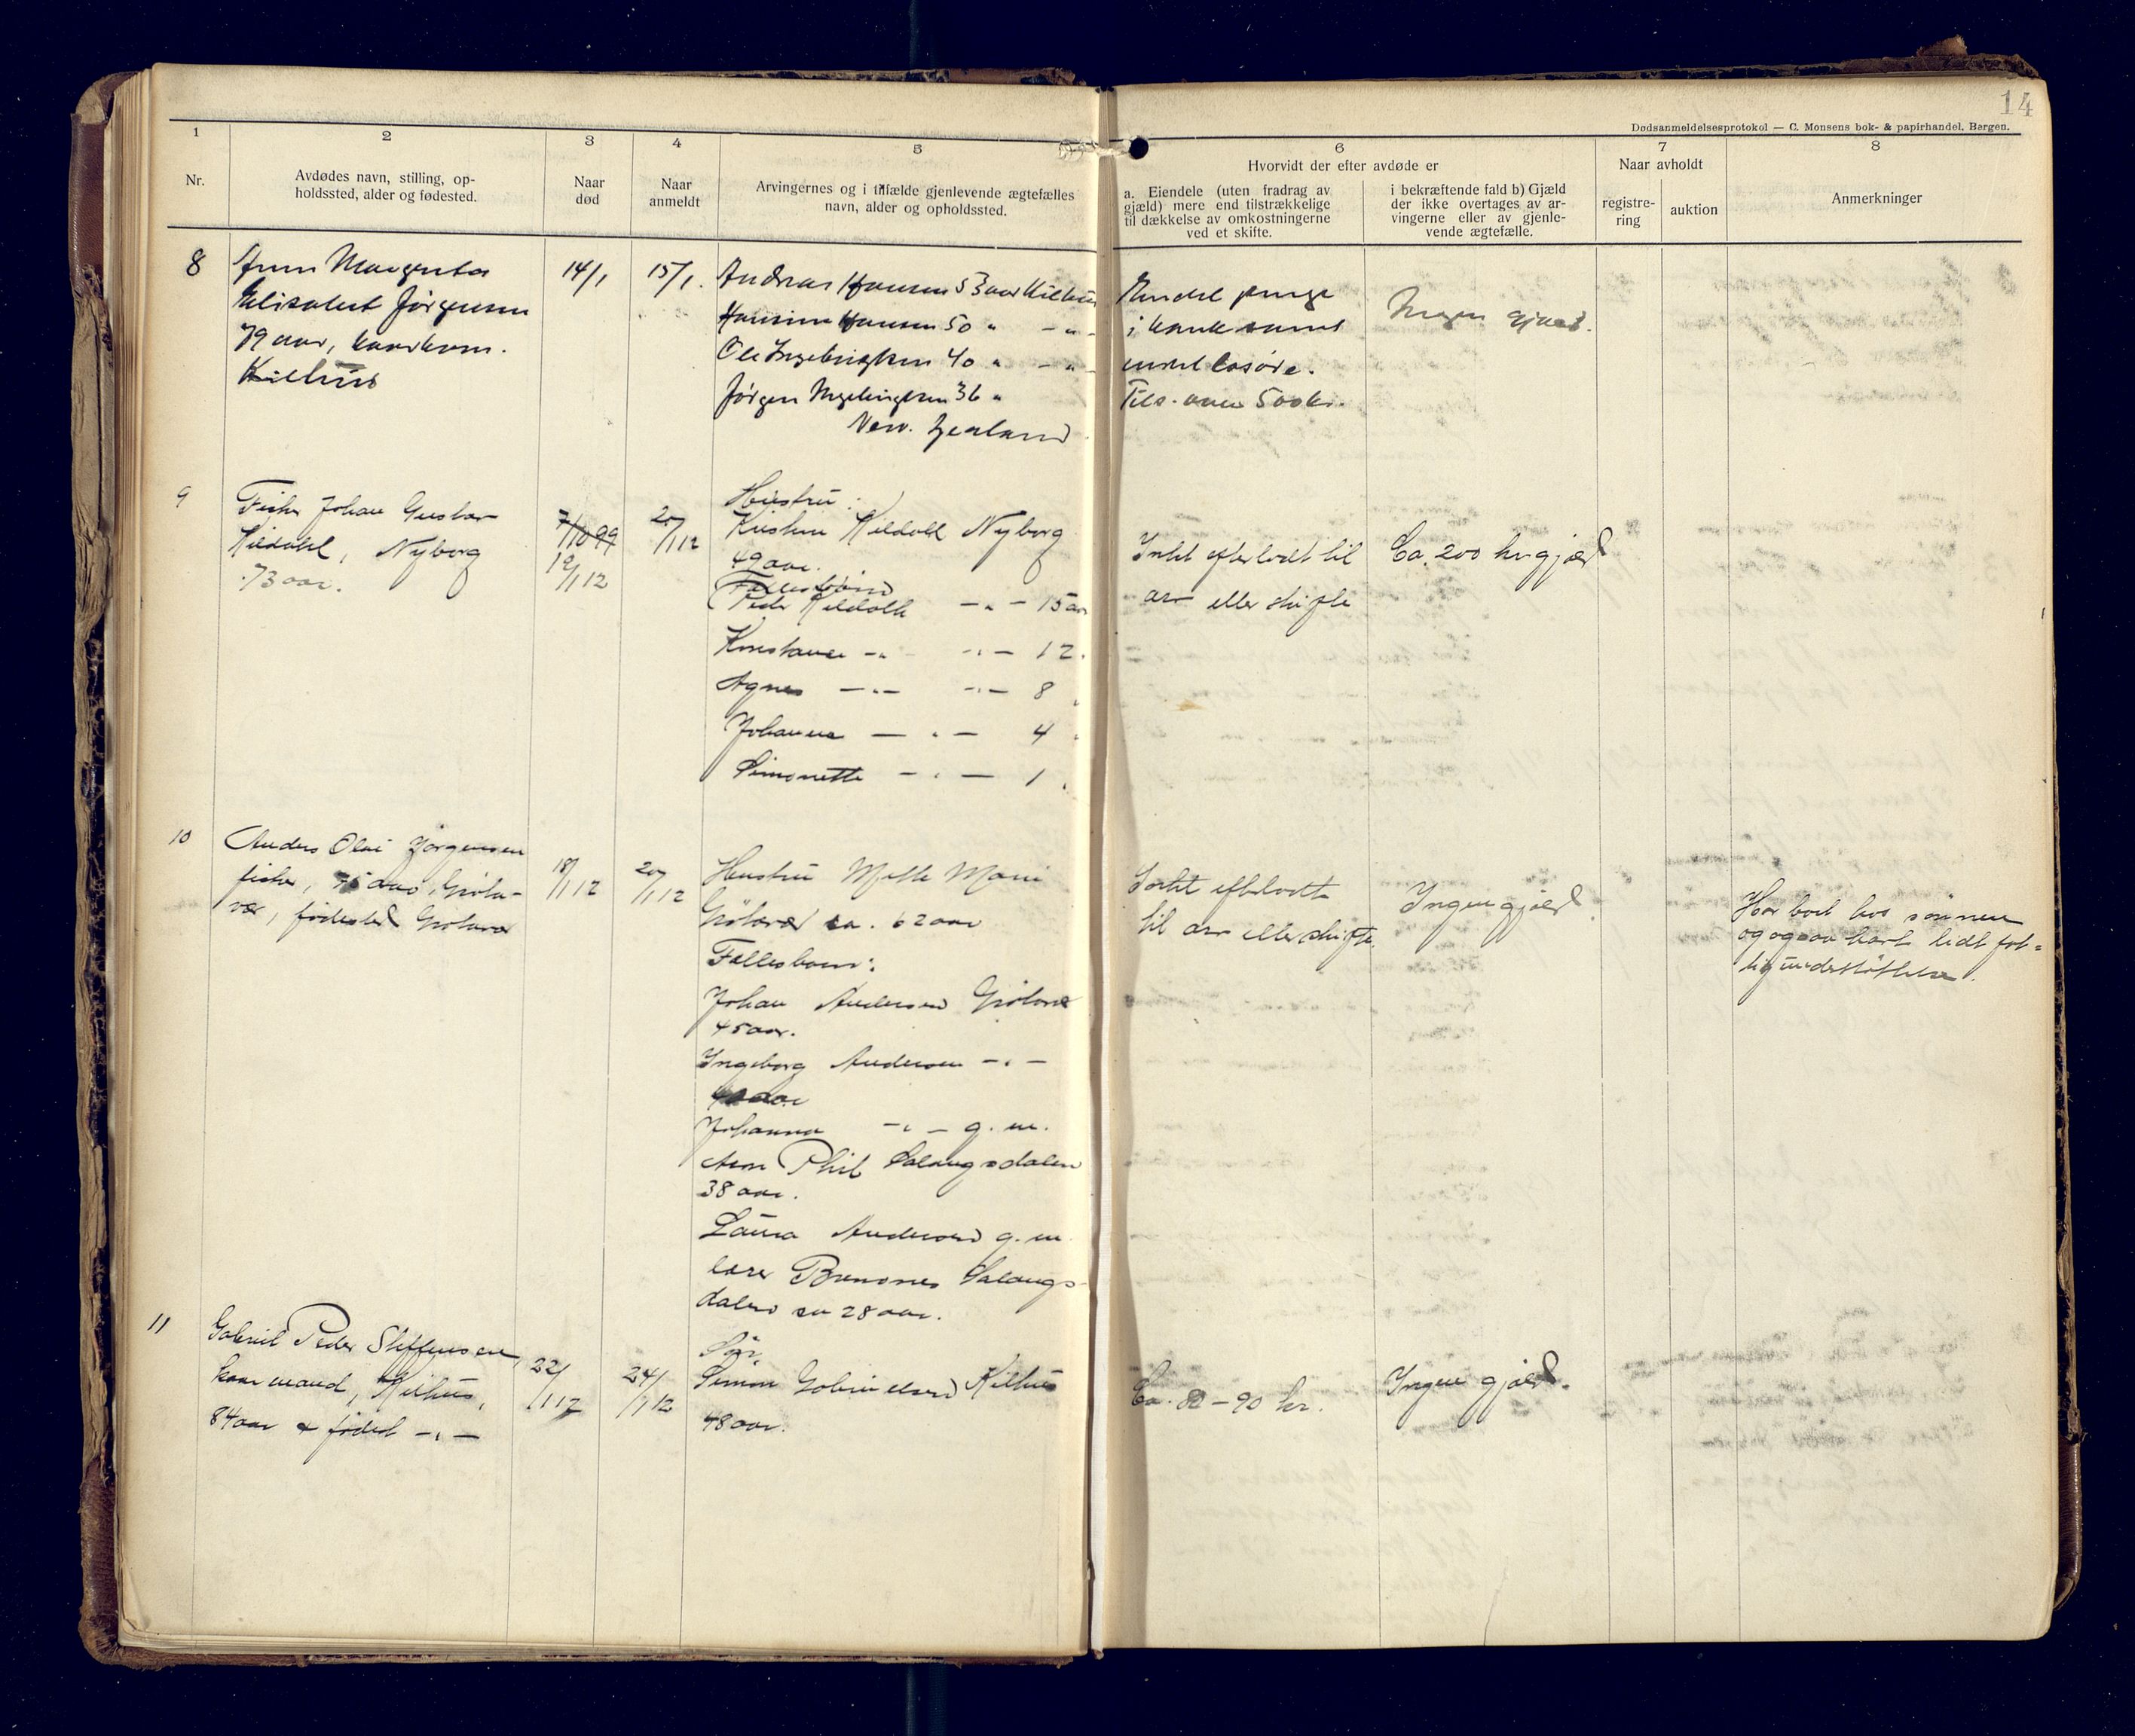 14
Dødsanmeldelsesprotokol — C. Monsens bok- & papirhandel, Bergen.
1
2
3
4
5
6
7
8
Nr.
Avdødes navn, stilling, op-
holdssted, alder og fødested.
Naar
død
Naar
anmeldt
Arvingernes og i tilfælde gjenlevende ægtefælles
navn, alder og opholdssted.
Hvorvidt der efter avdøde er
a. Eiendele (uten fradrag av
gjæld) mere end tilstrækkelige
til dækkelse av omkostningerne
ved et skifte.
i bekræftende fald b) Gjæld
der ikke overtages av ar-
vingerne eller av gjenle-
vende ægtefælle.
Naar avholdt
registre-
ring
auktion
Anmerkninger
8
Margreta
Elisabet Jørgensen
79 aar, kaarkone.
Kilhus
14/1
15/1.
Andreas Hansen 53 aar Kilhus
Hansine Hansen 50 " - " -
Ole Ingebrigtsen 40 " - " -
Jørgen Ingebrigtsen 36 "
New. Zealand
Endel penge
i bank samt
endel løsøre.
Tils. over 500 kr.
Ingen gjæld.
9
Fisker Johan Gustav
Kildahl, Nyborg
73 aar.
7/10 99
19/1 12
20/1 12
Hustru:
Kristine Kildahl Nyborg
49 aar.
Fællesbørn
Peder Kildahl — " — 15 aar
Konstance — " — " — 12 "
Agnes — " — " — 8 "
Johanna — " — 4 "
Simonette — " — 1 "
Intet efterladt til
arv eller skifte
Ca. 200 kr gjæld
10
Anders Olai Jørgensen
fisker, 75 aar, Grøla-
vær, fødested Grølavær
18/1 12
20/1 12
Hustru Mette Marie
Grølavær ca. 62 aar
Fællesbarn:
Johan Andersen Grølavær
45 aar.
Ingeborg Andersen — " —
Johanna — " — g. m.
Phil Salangsdalen
38 aar.
Laura Andersen g. m
lærer Salangs-
dalen ca 28 aar.
Intet efterladt
til arv eller skifte.
Ingen gjæld.
Har boet hos sønnen
og ogsaa havt lidt fat-
tigunderstøttelse.
11
Gabriel Peder Steffensen,
kaarmand, Kilhus,
84 aar & fødest — " —
22/1 12
24/1 12
Søn,
Simon Gabrielsen Kilhus
48 aar.
Ca. 80 – 90 kr.
Ingen gjæld.